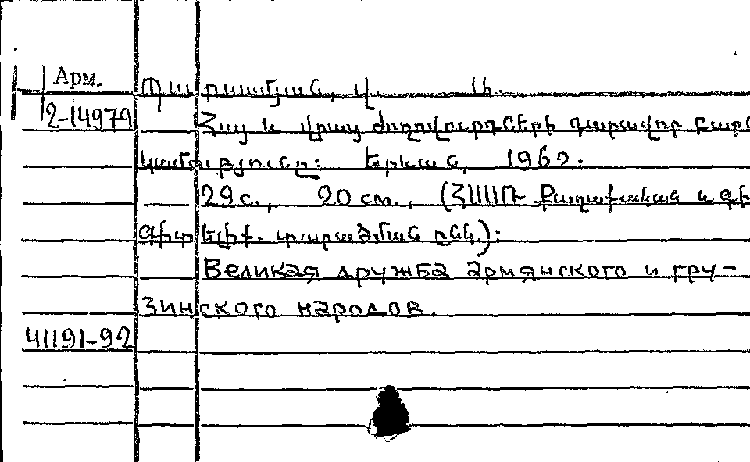 Арм.
2-14979
Հայ և վրաց ժողովուրդների դարավոր բարե
կամությունը: Երևան, 1962.
29 с., 20 см., (ՀՍՍՌ Քաղաքական և գի
գիտելիք. տարածման ընկ.):
Великая дружба армянского и гру-
зинского народов.
41191-92